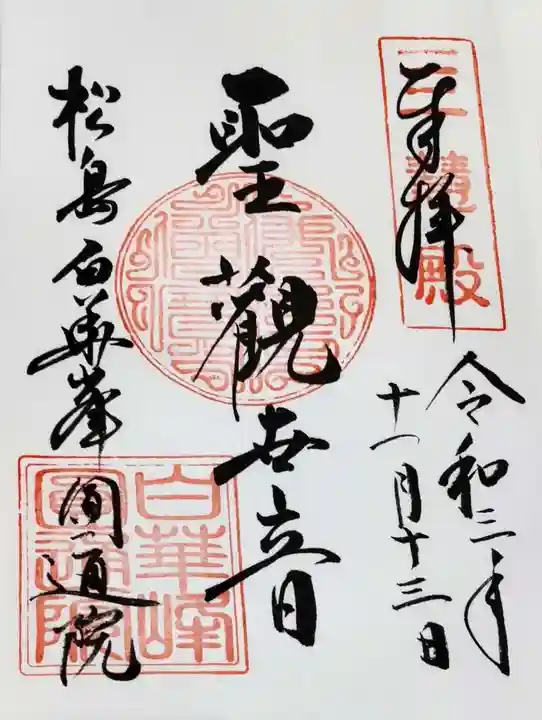 奉拝
令和三年
十一月十三日
聖觀世音
松島白華峯圓通院
三慧殿
白華峰
圓通院